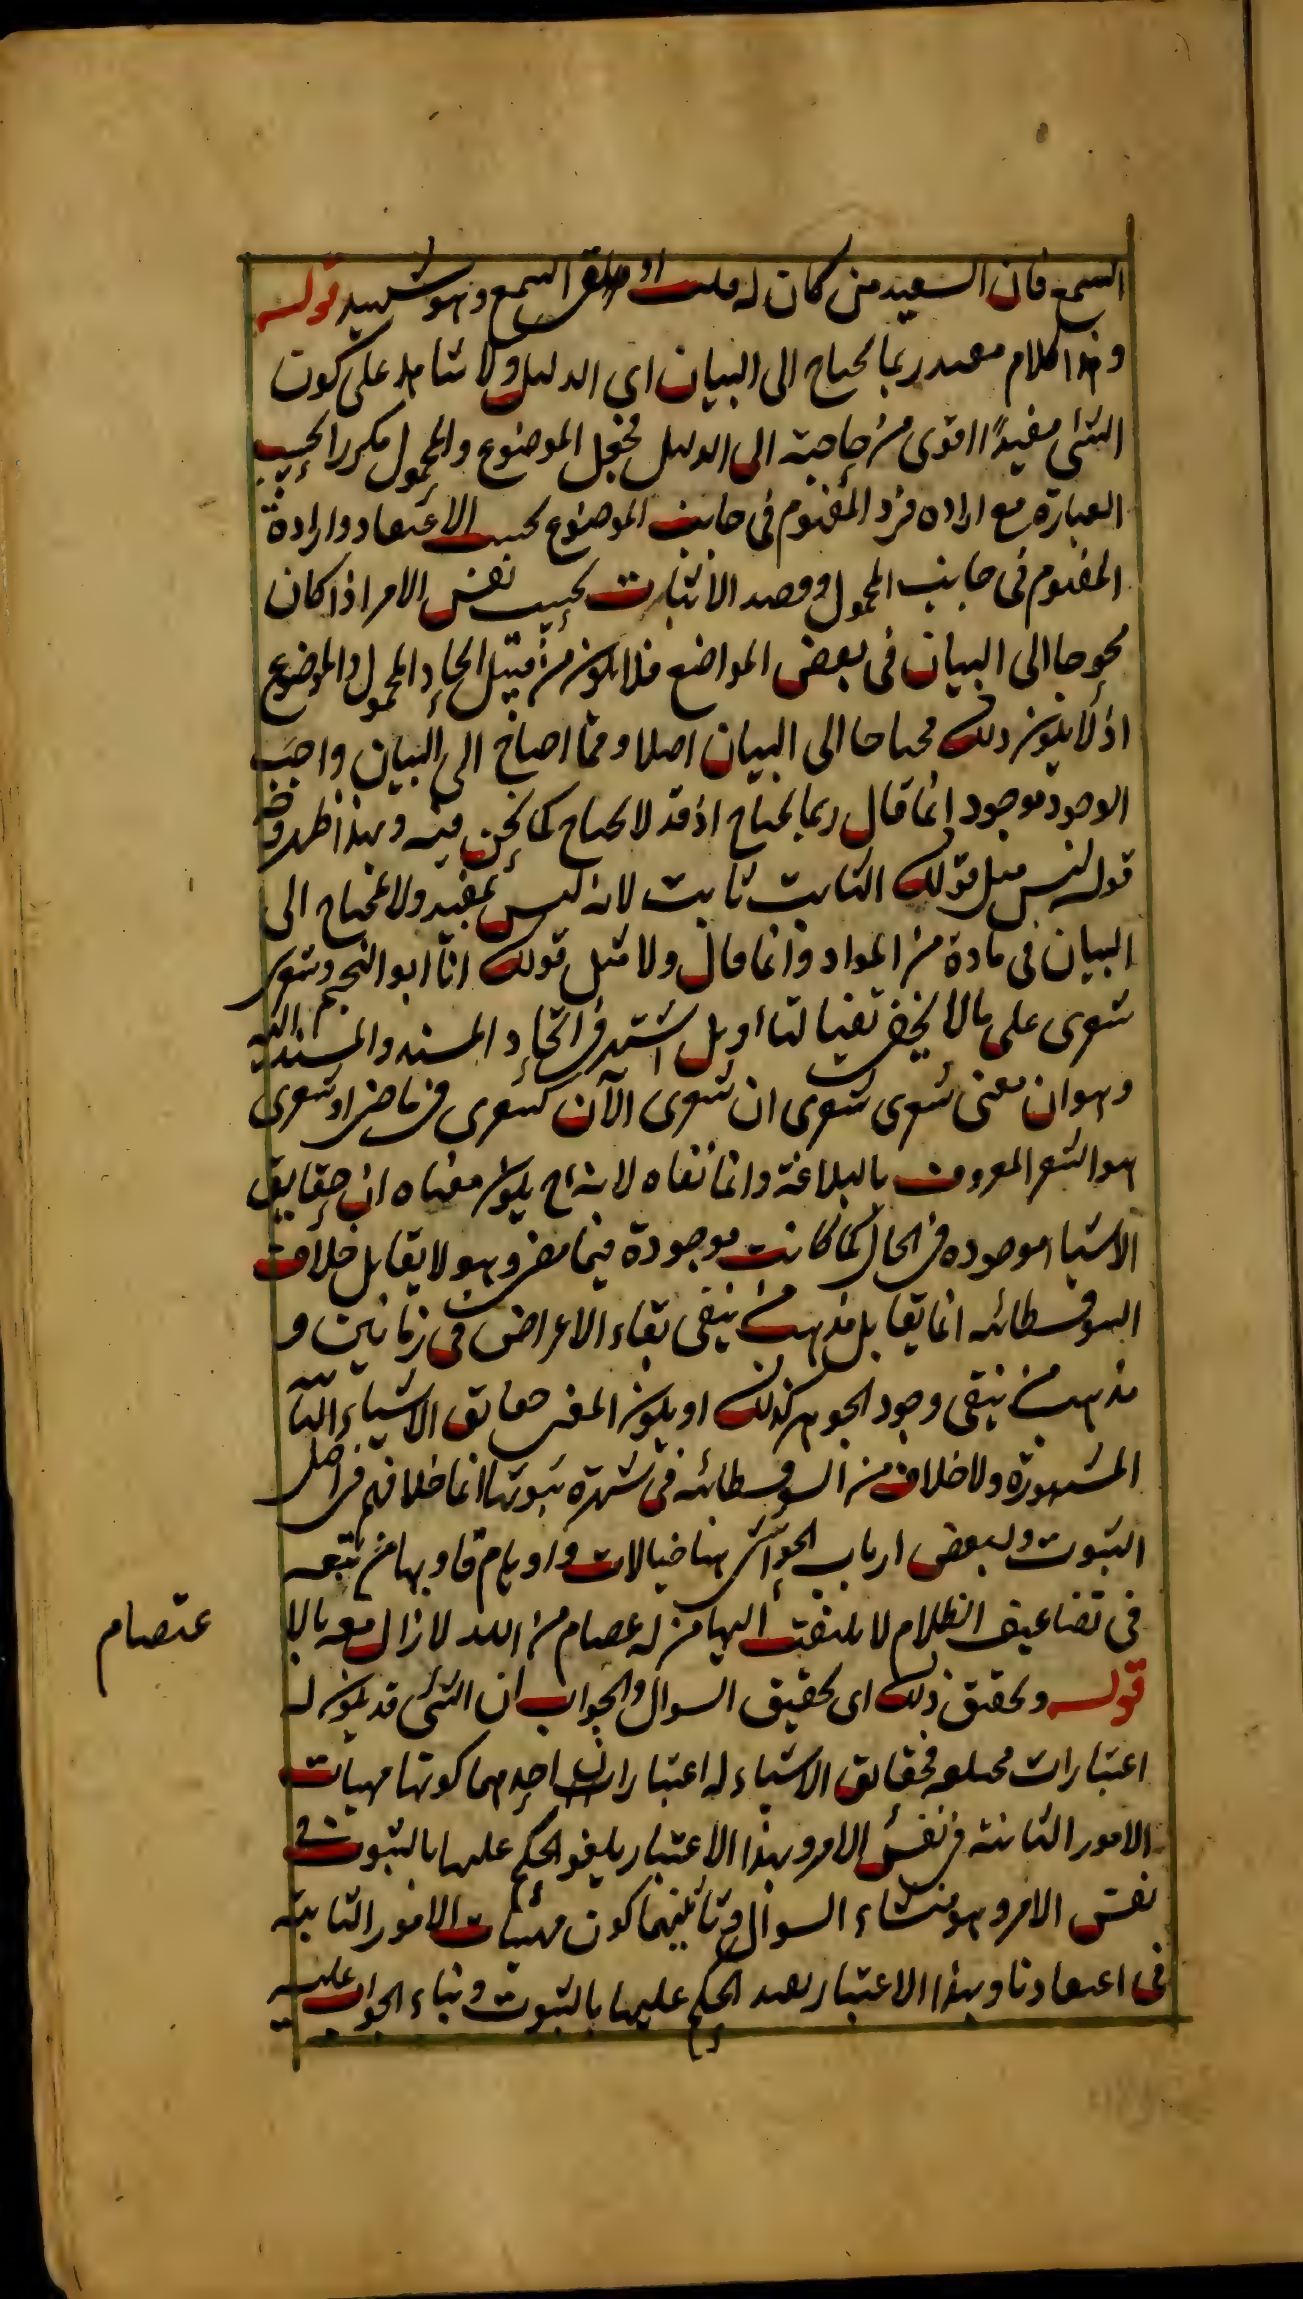 السمع فان السعيد من كان له قلب او القى السمع وهو شهيد قوله
وهذا الكلام مفيد ربما يحتاج الى البيان اى الدليل ولا شاهد على كون
الشئ مفيدًا اقوى من حاجته الى الدليل فجعل الموضوع والمحمول مكررا بحسب
العبارة مع اراده فرد المفهوم فى جانب الموضوع بحسب الاعتقاد وارادة
المفهوم فى جانب المحمول وقصد الاثبات بحسب نفس الامر اذا كان
محوجا الى البيان فى بعض المواضع فلا يكون من قبيل اتحاد المحمول والموضوع
اذ لا يكون ذلك محتاجا الى البيان اصلا ومما احتاج الى البيان واجب
الوجود موجود انما قال ربما يحتاج اذ قد لا يحتاج كما نحن فيه وبهذا ظهر وجه
قوله ليس مثل قولك الثابت ثابت لانه ليس بمفيد ولا محتاج الى
البيان فى مادة من المواد وانما قال ولا مثل قولك انا ابو النجم وشعرى
شعرى على ما لا يخفى نفيا لتأويل اشتهر فى اتحاد المسند والمسند اليه
وهو ان معنى شعرى شعرى ان شعرى الآن كشعرى فى ماضى او شعرى
هو الشعر المعروف بالبلاغة وانما نفاه لانه ح يكون معناه ان حقايق
الاشيا موجوده فى الحال كما كانت موجودة فيما مضى وهو لا يقابل خلاف
السوفسطائيه انما يقابل مذهب من ينفى بقاء الاعراض فى زمانين و
مذهب من ينفى وجود الجوهر كذلك او يكون المعنى حقايق الاشياء الثابتة
المشهورة ولا خلاف من السوفسطائيه فى شهرة ثبوتها انما خلافهم فى اصل
الثبوت ولبعض ارباب الحواشى هنا خيالات واوهام قاو بها من تتبعه
فى تضاعيف الظلام لا يلتفت اليها من له عصام من الله لا زال معه بالا
عتصام
قوله وتحقيق ذلك اى تحقيق السوال والجواب ان الشئ قد يكون له
اعتبارات مختلفه فحقايق الاشياء له اعتباران احدهما كونها مهيات
الامور الثابتة فى نفس الامر وبهذا الاعتبار يلغو الحكم عليها بالثبوت فى
نفس الامر وهو منشاء السوال وثانيهما كون مهيات الامور الثابته
فى اعتقادنا وبهذا الاعتبار يفيد الحكم عليها بالثبوت وبناء الجواب عليه